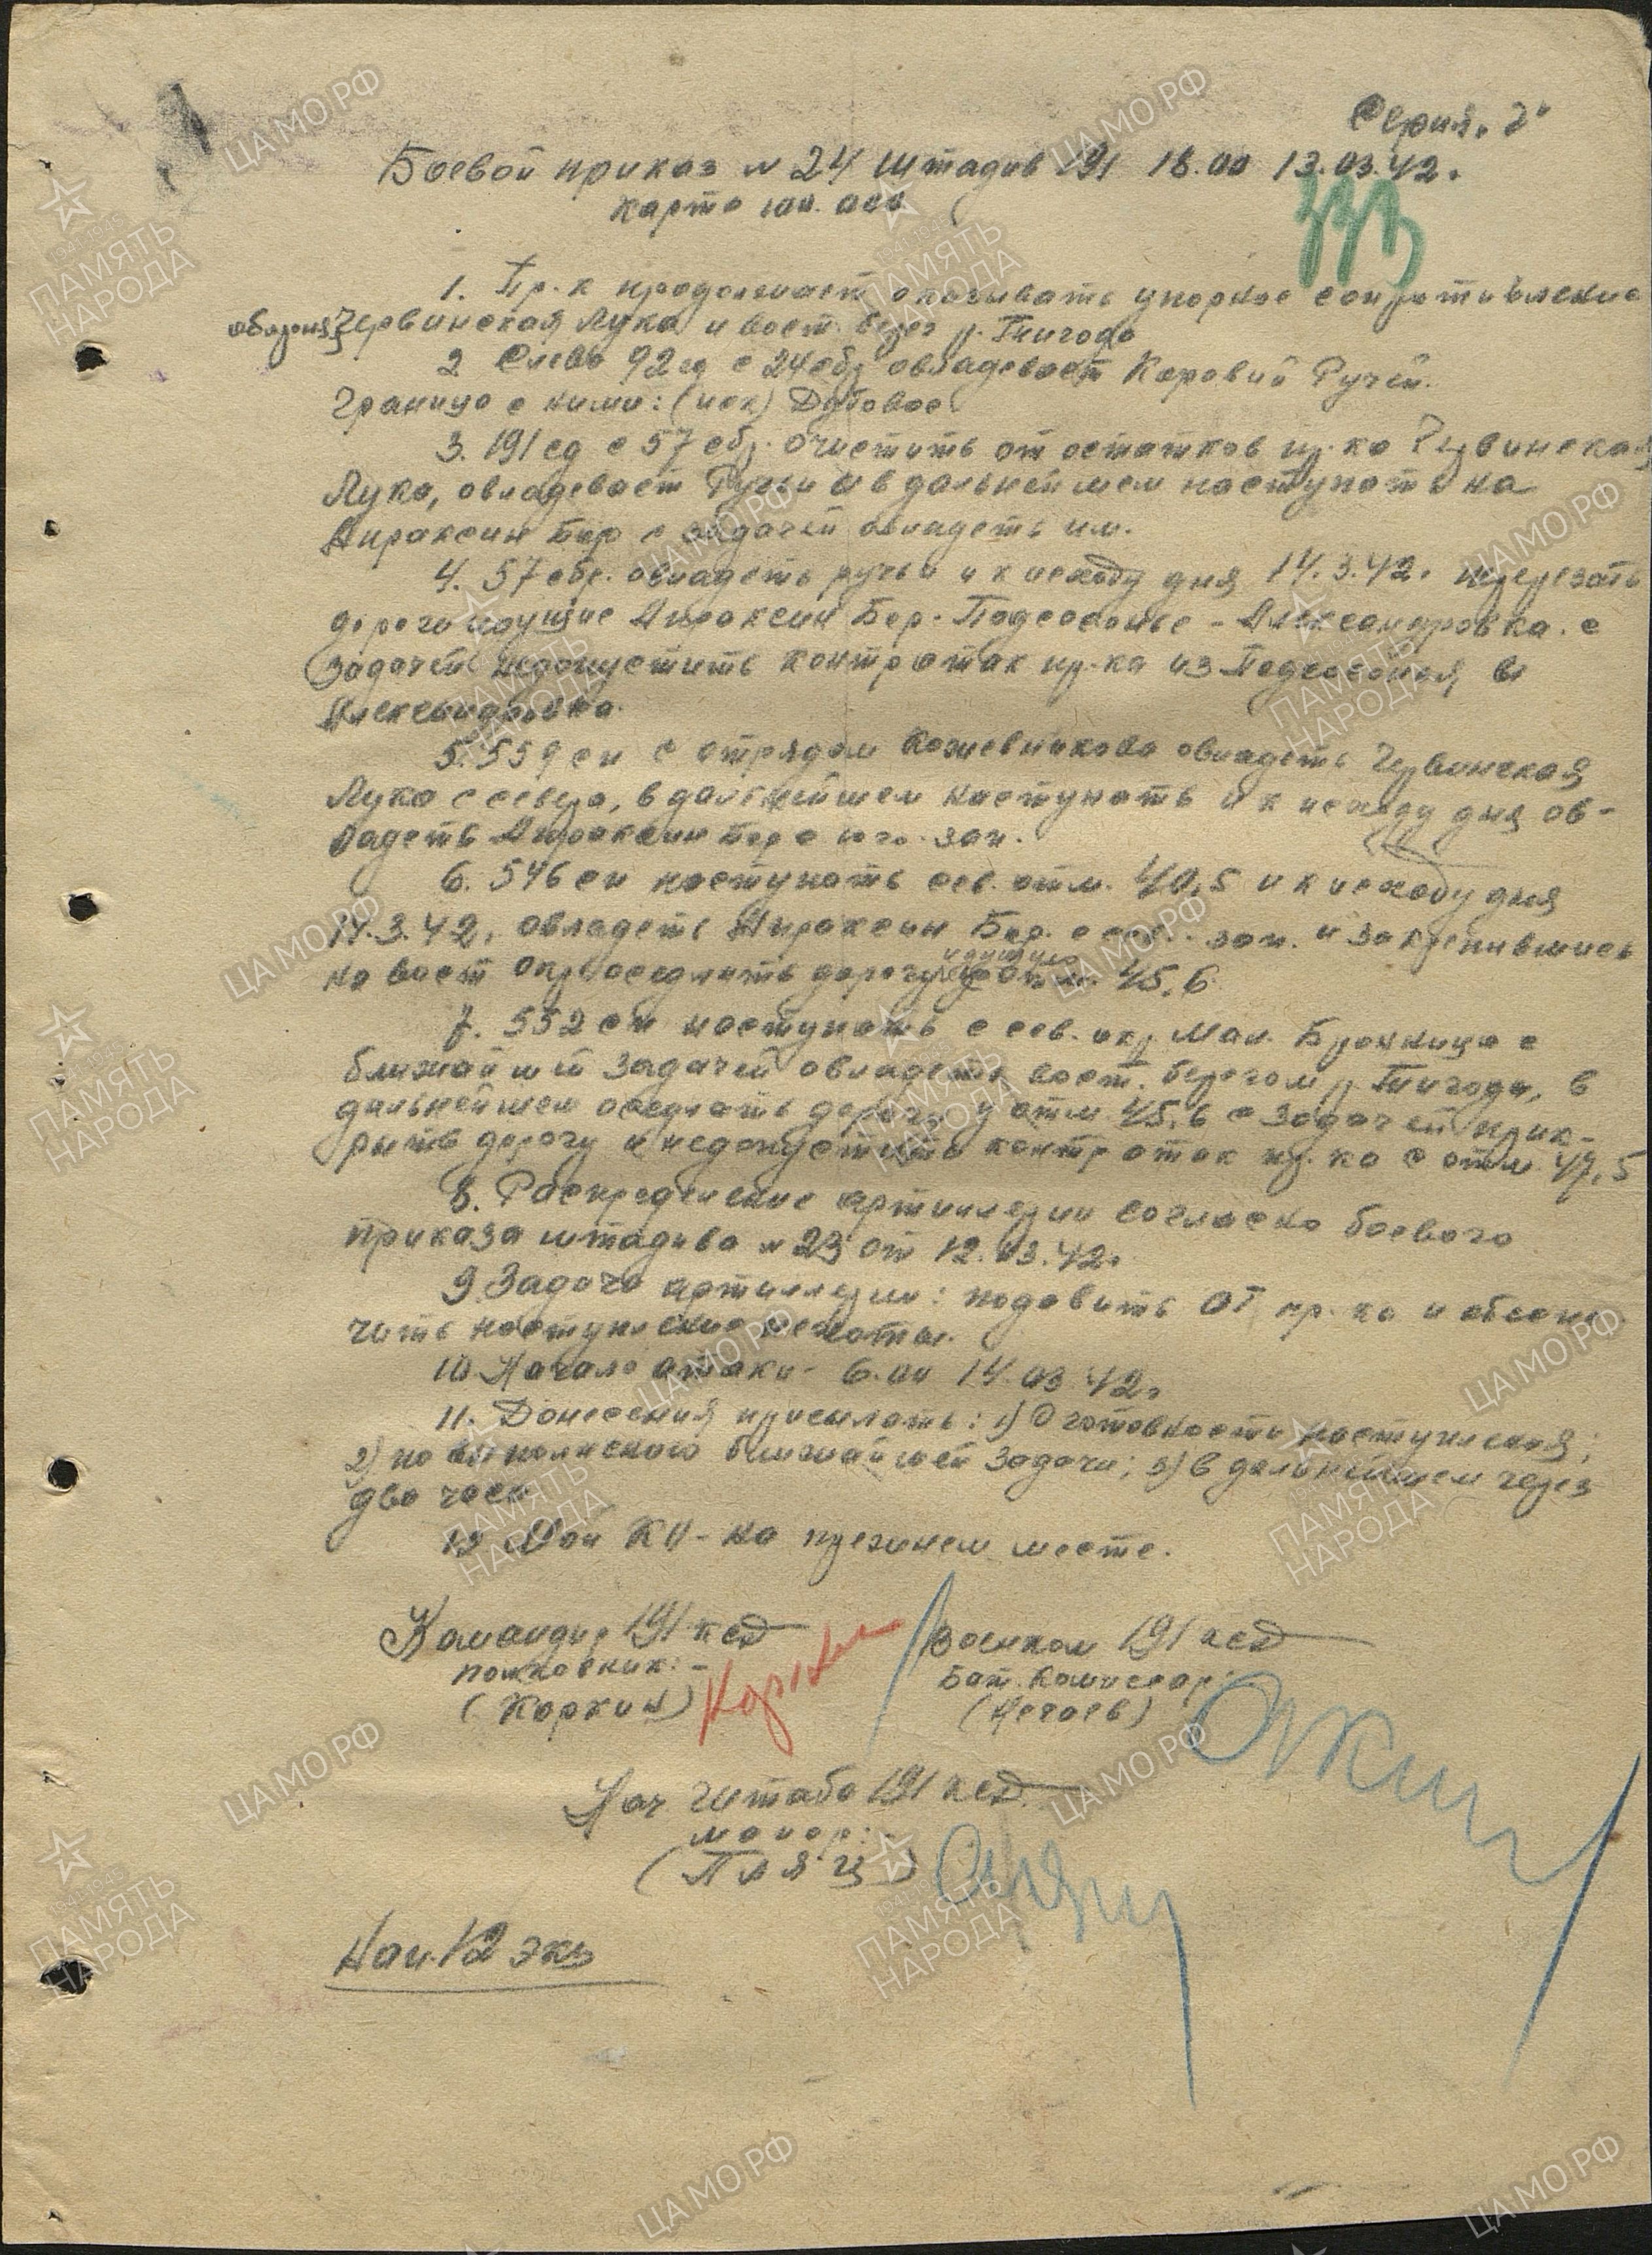 Серия. "Г"
Боевой приказ № 24 штадив 191 18.00 13.03.42.
карта 100.000
1. Пр-к продолжает оказывать упорное сопротивление
обороняя Червинская Лука и вост. берег р. Тигода
2 Слева 92 сд с 24 сбр овладевает Коровий Ручей.
Граница с ними: (иск) Дубовое
3. 191 сд с 57 сбр. очистить от остатков пр-ка Червинская
Лука, овладевает Ручьи и в дальнейшем наступать на
Апраксин Бор с задачей овладеть им.
4. 57 сбр. овладеть ручьи и к исходу дня 14.3.42. перерезать
дороги идущие Апраксин Бор - Подсосонье - Александровка. с
задачей недопустить контратак пр-ка из Подсосонья и
Александровка.
5. 559 сп с отрядом Кожевникова овладеть Червинская
Лука с севера, в дальнейшем наступать и к исходу дня ов-
ладеть Апраксин Бор с юго-зап.
6. 546 сп наступать сев. отм. 40,5 и к исходу дня
14.3.42. овладеть Апраксин Бор. с сев.-зап. и закрепившись
на вост окр оседлать дорогу идущую отм. 45,6
7. 552 сп наступать с сев. окр Мал. Бронница с
ближайшей задачей овладеть вост. берегом р. Тигода, в
дальнейшем оседлать дорогу у отм 45,6 с задачей прик-
рыть дорогу и недопустить контратак пр-ка с отм 47,5
8. Распределение артиллерии согласно боевого
приказа штадива № 23 от 12.03.42.
9. Задача артиллерии: подавить ОТ пр-ка и обеспе-
чить наступление пехоты.
10 Начало атаки - 6.00 14.03.42.
11. Донесения присылать: 1) О готовности наступления;
2) по выполнению ближайшей задачи; 3) в дальнейшем через
два часа
12 Мой КП - на прежнем месте.
Командир 191 ксд Военком 191 ксд
полковник:- Бат. Комиссар:
(Коркин) Коркин (Нечаев)
Нач Штаба 191 ксд
майор:
(Пляц)
Нап. 12 экз
ЦАМО.РФ
ПАМЯТЬ
НАРОДА